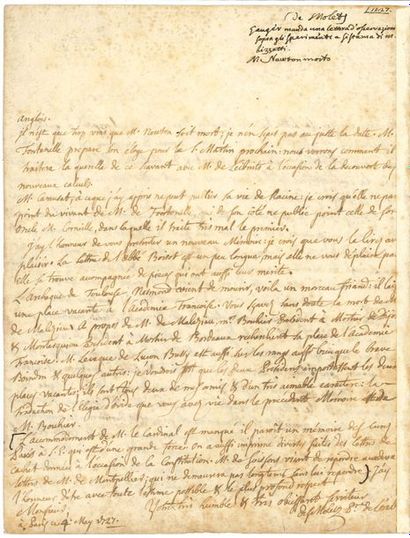 1727.
de Molets
Gauger manda una lettera d'osservazioni
sopra gli sperimenti e sistema di m.
Rizzetti.
Mr Newton morto
anglois.
il n'est que trop vrai que M. Newton soit mort; je n'en sçais pas au juste la datte. M.
Fontenelle prepare son eloge pour la St Martin prochain; nous verrons comment il
traittera la querelle de ce savant avec M. de Leibnits à l'occasion de la decouvert des
nouveaux calculs.
M. à ce que j'ay appris ne peut publier sa vie de Racine; je crois qu'elle ne paroi
point du vivant de M. de Fontenelle, qui de son côté ne publie point celle de son
oncle M. Corneille dans laquelle il traite tres mal le premier.
J'ay l'honneur de vous presenter un nouveau Memoire; je crois que vous le lirez avec
plaisir. La lettre de l'abbé Boisot est un peu longue, mais elle ne vous deplaira pas
elle se trouve accompagnée de pieces qui ont aussi leur merite.
L'archeveque de Toulouse Nesmond vient de mourir, voila un morceau friand; il laisse
une place vacante à l'Academie Françoise. Vous sçavez sans doute la mort de M.
de Malezieu. à propos de M. de Malezieu mrs Bouhier President à Mortier de Dijon
& Montesquieu President à Mortier de Bordeaux recherchent la place de l'Academie
Françoise. M. l'eveque de Luçon Bussy est aussi sur les rangs aussi bien que le brave
Boindin & quelques autres; je voudrois que les deux Presidents emportassent les deux
places vacantes; ils sont tous deux de mes amis & d'un tres aimable caractere: la
traduction de l'elegie d'Ovide que vous avez vue dans le precedente Memoire est de
M. Bouhier.
L'accommodement de M. le Cardinal est manqué il paroit un memoire des Curés
de Paris à S. E. qui est d'une grande force. on a aussi imprimé diverses suites des lettres de
cachet données à l'occasion de la Constitution. M. de Soissons vient de repondre aux deux
lettres de M. de Montpellier; qui ne demeurera pas longtems sans luy repondre. J'ay
l'honneur d'être avec toute l'estime possible & le plus profond respect
Monsieur,
Votre tres humble & tres obeissant serviteur
à Paris ce 4. May 1727.